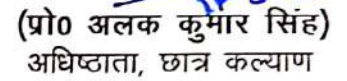 (प्रो0 अलक कुमार सिंह)
अधिष्ठाता, छात्र कल्याण